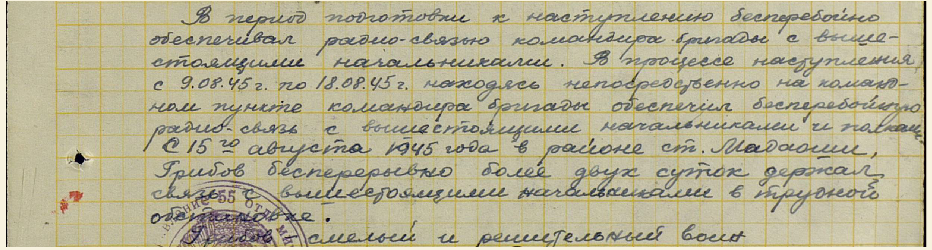 В период подготовки к наступлению бесперебойно
обеспечивал радио-связью командира бригады с выше-
стоящими начальниками. В процессе наступления
с 9.08.45 г. по 18.08.45 г. находясь непосредственно на команд-
ном пункте командира бригады обеспечил бесперебойную
радио-связь с вышестоящими начальниками и
С 15го августа 1945 года в районе ст. Мадаоши,
Грибов бесперерывно более двух суток держал
связь с вышестоящими начальниками в трудной
обстановке.
Грибов смелый и решительный воин
55 отд